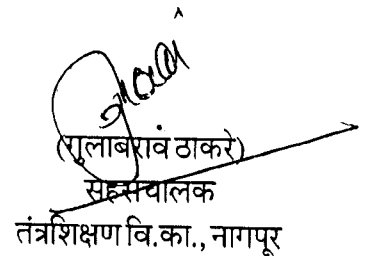 (गुलाबरावं ठाकरे)
सहसंचालक
तंत्रशिक्षण वि.का., नागपूर